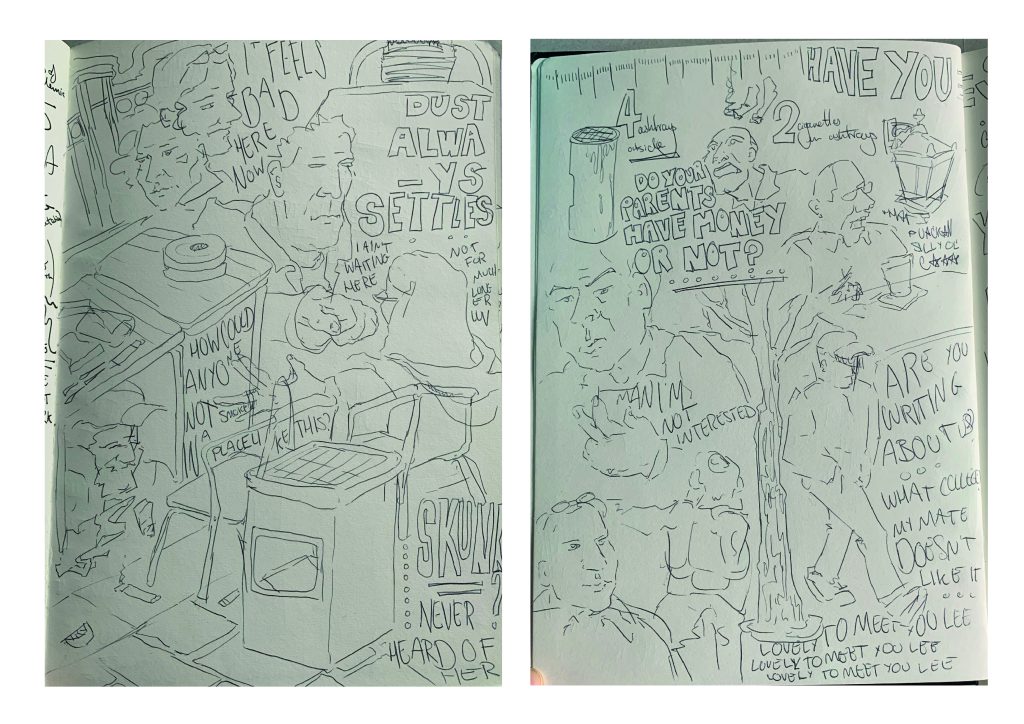 IT FEELS
BAD
HERE
NOW
DUST
ALWA
-YS
SETTLES
I AIN'T
WAITING
HERE
NOT
FOR
MUCH
LONG
ER
LUV
HOW COULD
ANYONE
NOT SMOKE
IN A PLACE LIKE THIS?
SKUNK
?
NEVER
HEARD OF
HER
HAVE YOU
4 ashtrays
outside
2 cigarettes
in ashtrays
DO YOUR
PARENTS
HAVE MONEY
OR NOT?
SILLY OL'
MAN I'M
NOT
INTERESTED
ARE YOU
WRITING
ABOUT US
WHAT COLLEGE?
MY MATE
DOESN'T
LIKE IT
...
LOVELY TO MEET YOU LEE
LOVELY TO MEET YOU LEE
LOVELY TO MEET YOU LEE